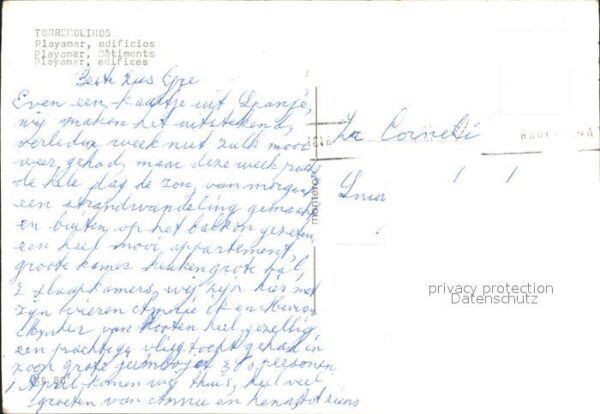 TORREMOLINOS
Playamar, edificios
Playamar, Bâtiments
Playamar, edifices
Beste Zus
Even een kaartje uit Spanje,
wij maken het uitstekend,
verleden week niet zulk mooi
weer gehad, maar deze week
de hele dag de zon, van morgen
een strandwandeling gemaakt
en buiten op het balkon gezeten,
een heel mooi appartement,
grote kamer keuken grote hal,
2 slaapkamers, wij zijn hier met
zijn vieren ik en Mevrouw
van Hooten heel gezellig
een prachtige vliegtocht gehad in
zoon grote jumbojet 380 personen
1 April komen wij thuis, heel veel
groeten van Annie en
montero
Zr Corneli
privacy protection
Datenschutz